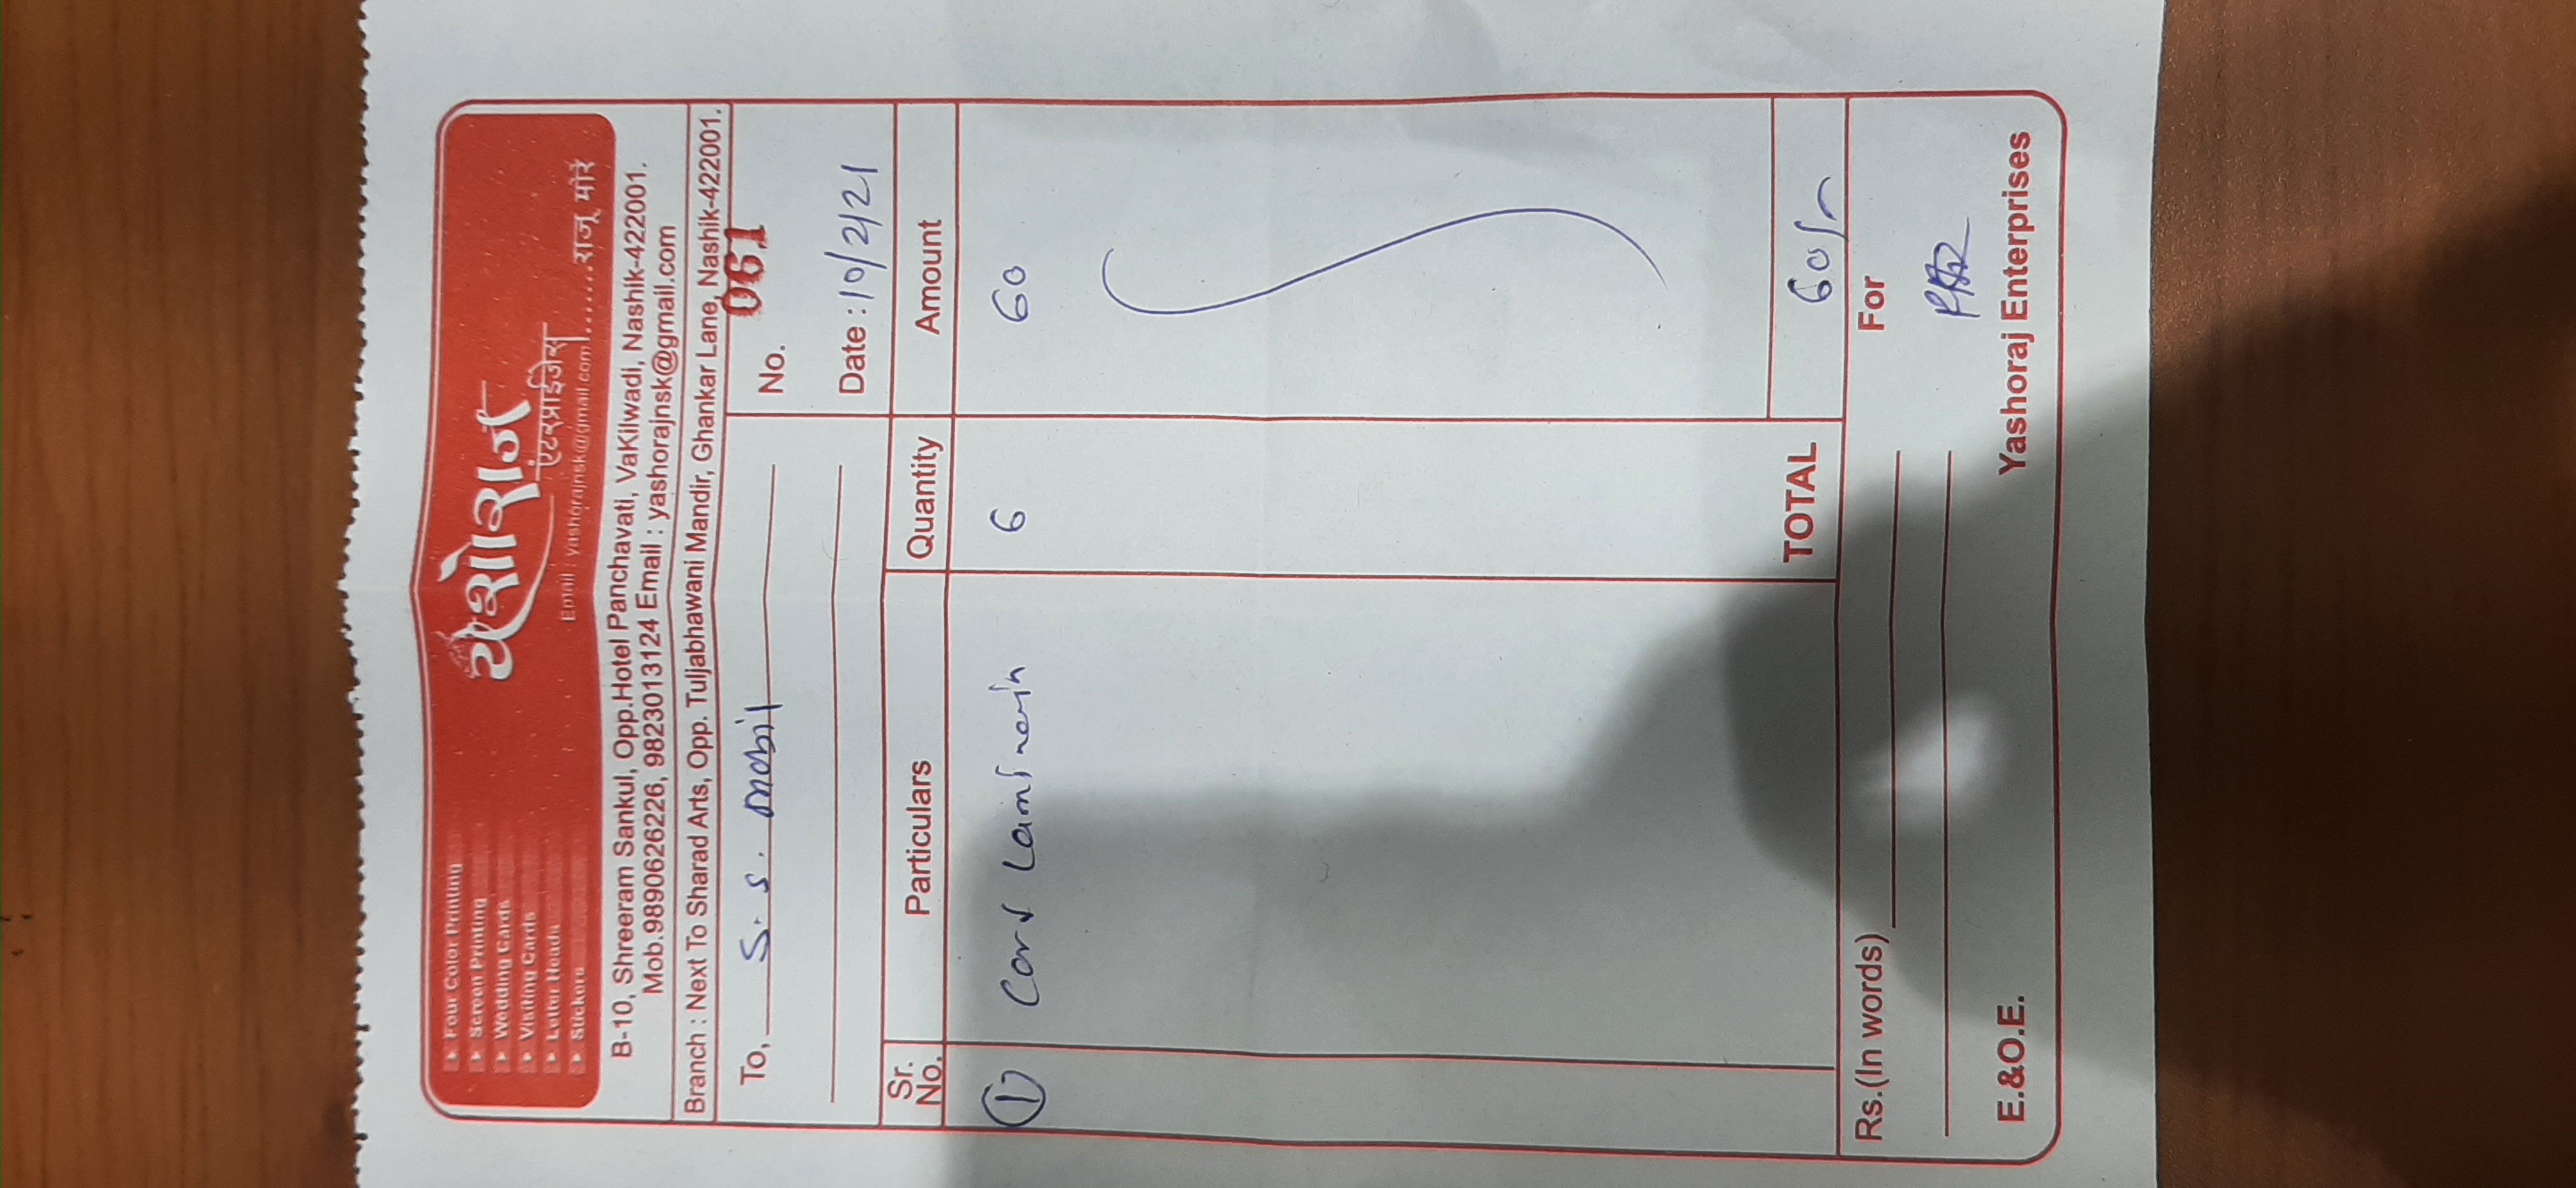 Four Color Printing
Screen Printing
Wedding Cards
Visiting Cards
Letter Heads
Stickers
यशोराज
एंटरप्राईजेस
Email : yashorajnsk@gmail.com
........राजू मोरे
B-10, Shreeram Sankul, Opp.Hotel Panchavati, VaKilwadi, Nashik-422001.
Mob.9890626226, 9823013124 Email : yashorajnsk@gmail.com
Branch : Next To Sharad Arts, Opp. Tuljabhawani Mandir, Ghankar Lane, Nashik-422001.
To, S. S. mobil
No. 061
Date : 10/2/21
Sr. No. Particulars Quantity Amount
1 Card 6 60
TOTAL 60/-
Rs.(In words)
For
E.&O.E.
Yashoraj Enterprises